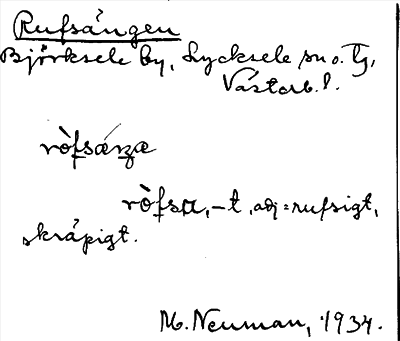 Rufsängen
Björksele by, Lycksele sn o. Tg,
Västerb. l.
ròfsa, -t, adj = rufsigt,
skräpigt.
M. Neuman, 1934.